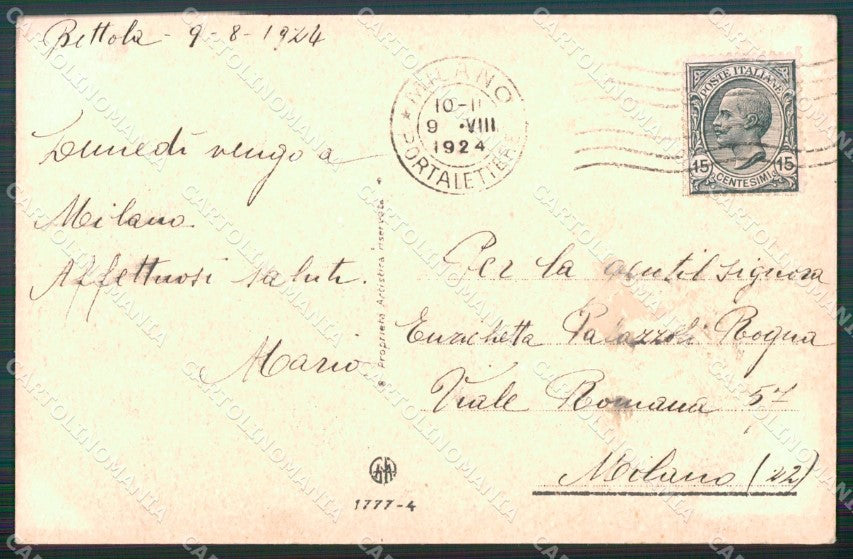 Bettola - 9-8-1924
Lunedì vengo a
Milano.
Affettuosi saluti.
Mario.
MILANO
10-11
9 ·VIII
1924
PORTALETTERE
POSTE ITALIANE
15 15
CENTESIMI
Proprietà Artistica riservata
Per la gentil signora
Enrichetta Palazzoli Rogna
Viale Romana 57
Milano (22)
1777-4
CARTOLINOMANIA